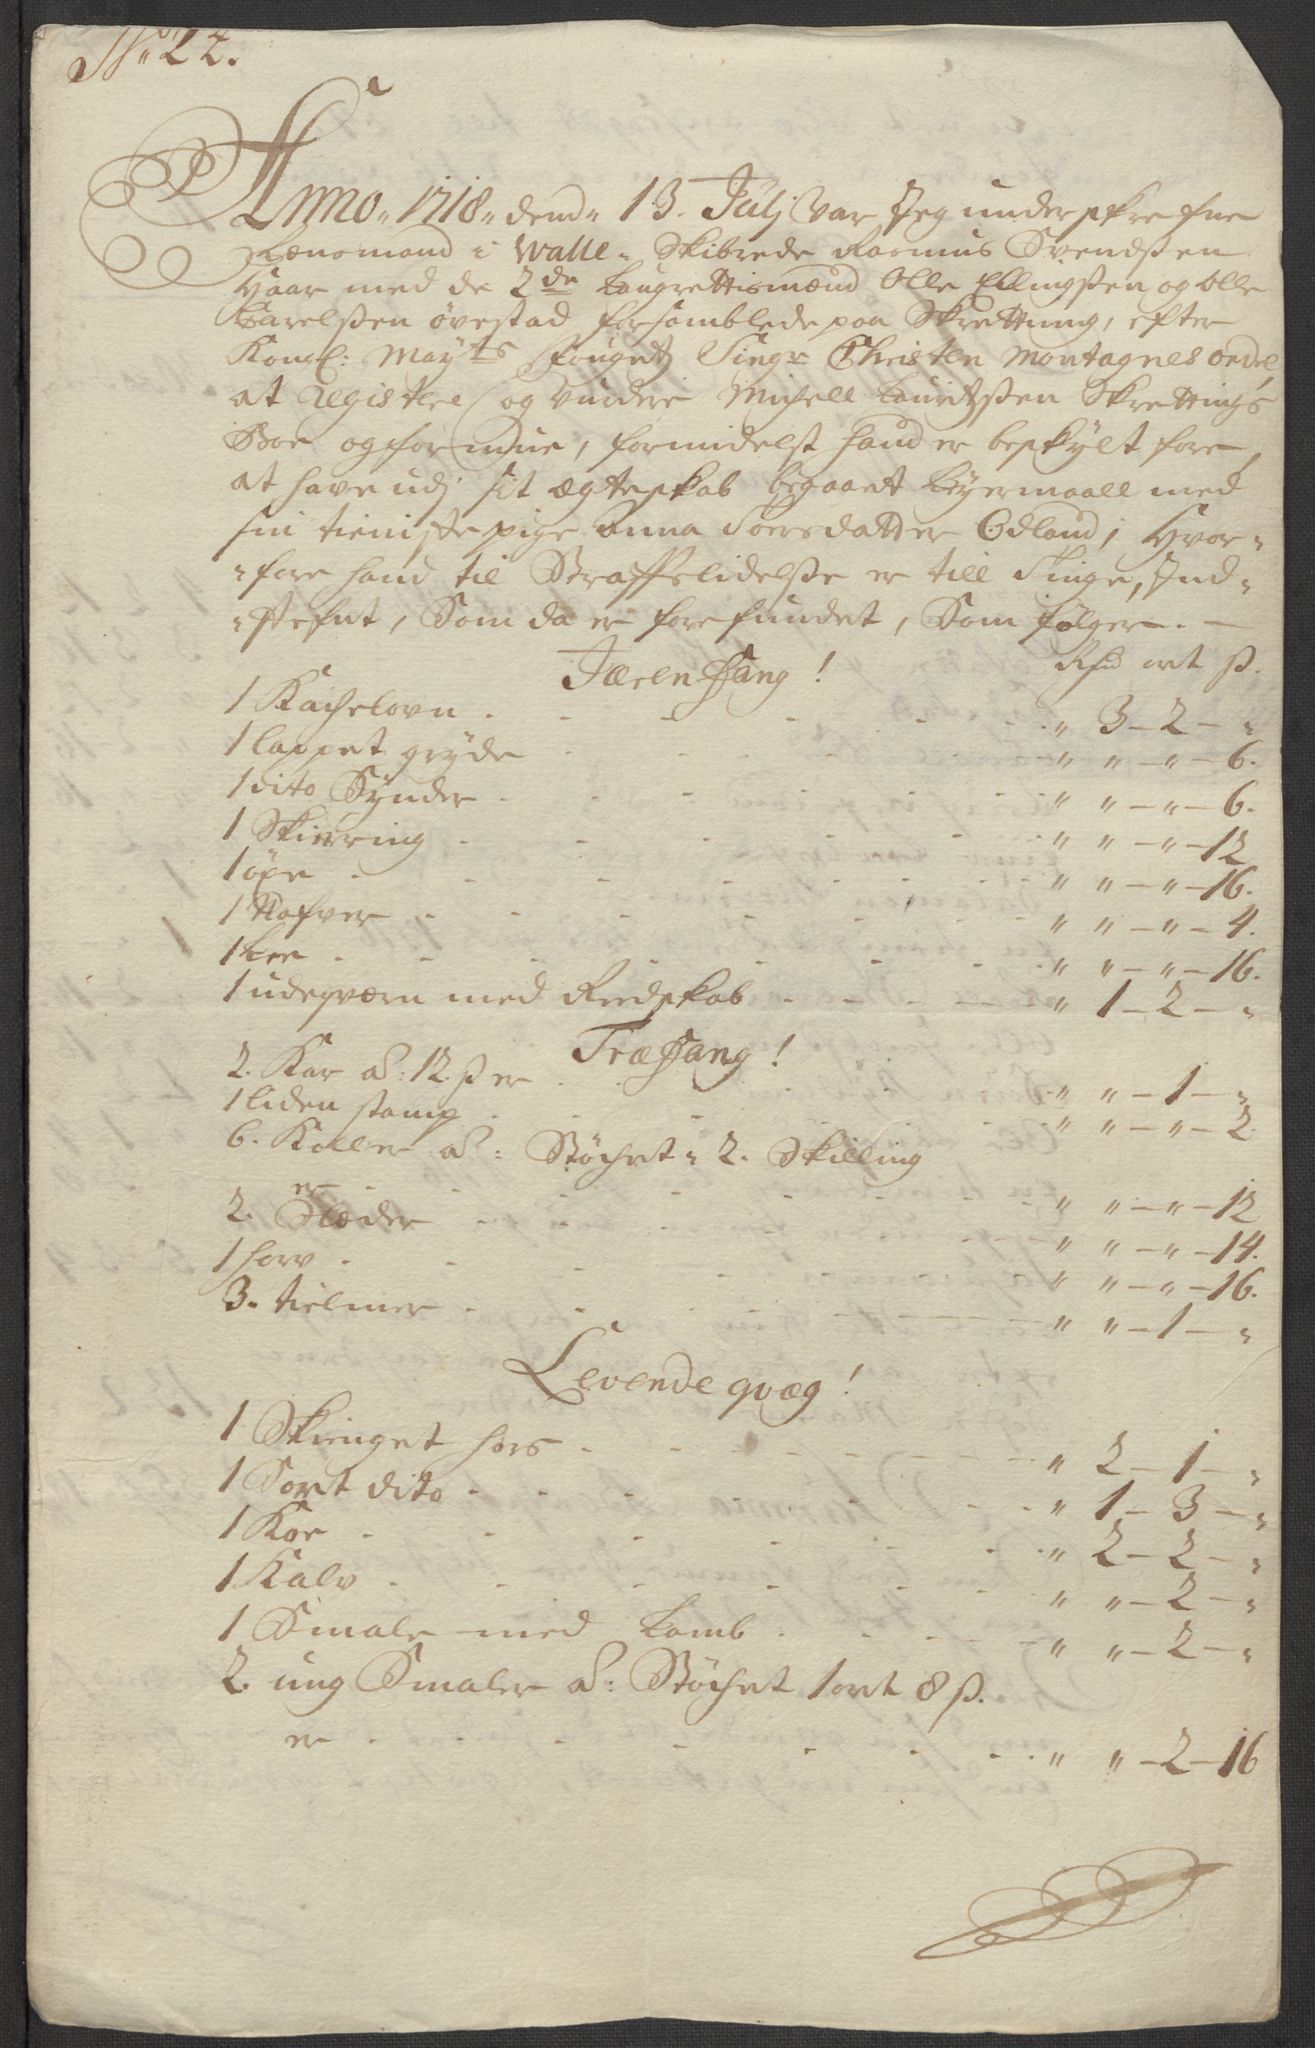 No 22.
Anno 1718 dend 13. Julj var Jeg underskrefne
Lænsmand i Walle Skibrede Rasmus Svendsen
Haar med de 2de Laugrettismænd Olle Ellingsen og Olle
Karelsen övestad forsamblede paa Skretting, efter
Kongl: Mayts fougetz Singr Christen Montagnes ordre
at Registere og vurdere Michell Lauritzsen Skrettings
Boe og formue, formidelst hand er beskylt fore,
at have udj sit ægteskab begaaet Leyermaall med
sin tieniste pige Anna Toersdatter Odland, Hvor-
fore hand til Straffslidelse er till Tinge, Ind-
stefnt, Som da er forefundet, Som fölger. —
Jærenfang! Rsd ort s.
1 Kachelovn . . . " 3 - 2 - "
1 lappet gryde . . . " " - " - 6.
1 dito Synder . . . " " - " - 6.
1 Skierring . . . " " - " - 12
1 öxe . . . " " - " - 16.
1 Nafver . . . " " - " - 4.
1 Lee . . . " " - " - 16.
1 udeqværn med Reedskab . . . " 1 - 2 - "
Træfang!
2. Kar a: 12. s er . . . " " - 1 - "
1 liden stamp . . . " " - " - 2
6. Koller a: Stöchet 2. Skilling
er . . . " " - " - 12
2. Slæder . . . " " - " - 14.
1 horv . . . " " - " - 16.
3. tielmer . . . " " - 1 - "
Levende qvæg!
1 Skimget hors . . . " 2 - 1 - "
1 Sort dito . . . " 1 - 3 - "
1 Koe . . . " 2 - 2 - "
1 Kalv . . . " " - 2 - "
1 Smale med Lamb . . . " " - 2 - "
2. ung Smaler a: Stöchet 1 ort 8 s.
er . . . " " - 2 - 16